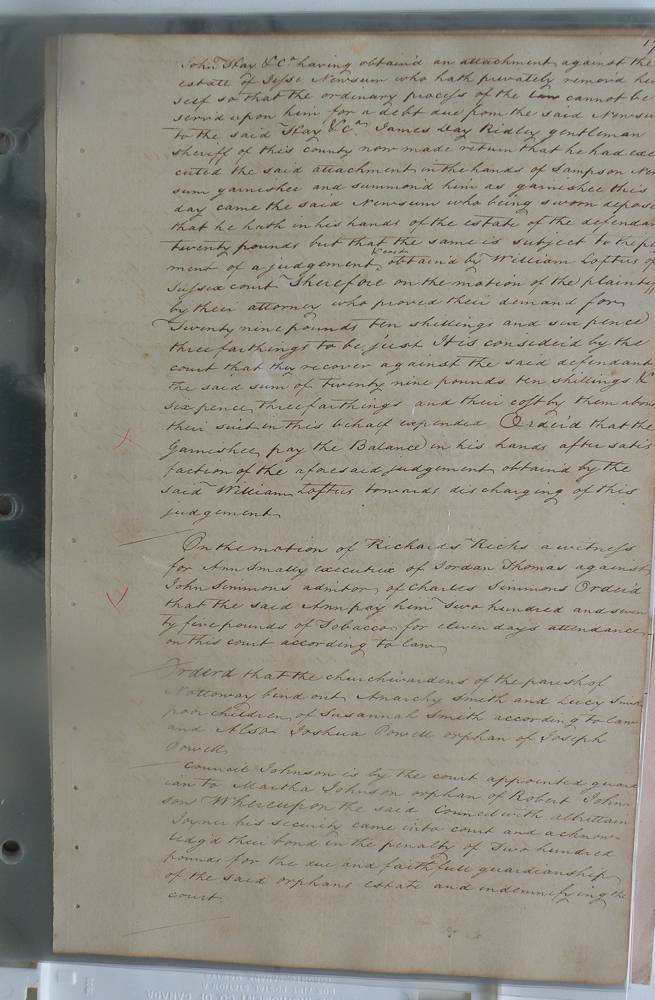 17
John Hay & Co having obtain'd an attachment against the
estate of Jesse Newsum who hath privately remov'd him
self so that the ordinary process of the law cannot be
serv'd upon him for a debt due from the said Newsum
to the said Hay & Co James Day Ridley gentleman
sheriff of this county now made return that he had exe
cuted the said attachment in the hands of Sampson New
sum garnishee and summon'd him as garnishee this
day came the said Newsum who being sworn depose
that he hath in his hands of the estate of the defendan
twenty pounds but that the same is subject to the pay
ment of a judgement obtain'd by William Loftus of
Sussex court Therefore on the motion of the plaintiff
by their attorney who proved their demand for
Twenty nine pounds ten shillings and six pence
three farthings to be just It is consider'd by the
court that they recover against the said defendant
the said sum of twenty nine pounds ten shillings &
six pence three farthings and their costs by them about
their suit in this behalf expended Order'd that the
Garnishee pay the Balance in his hands after satis
faction of the aforesaid judgement obtain'd by the
said William Loftus towards discharging of this
judgement
On the motion of Richard Ricks a witness
for Ann Smally executrix of Jordan Thomas against
John Simmons admtor of Charles Simmons Order'd
that the said Ann pay him Two hundred and seven
ty five pounds of Tobacco for eleven days attendance
on this court according to law
Orderd that the churchwardens of the parish of
Nottoway bind out Anarchy Smith and Lucy Smith
poor children of Susannah Smith according to law
and Also Joshua Powell orphan of Joseph
Powell
Council Johnson is by the court appointed guard
ian to Martha Johnson orphan of Robert John
son Whereupon the said Council with albrittain
Joyner his security came into court and acknow
ledg'd their bond in the penalty of Two hundred
pounds for the due and faithfull guardianship
of the said orphans estate and indemnifying the
court